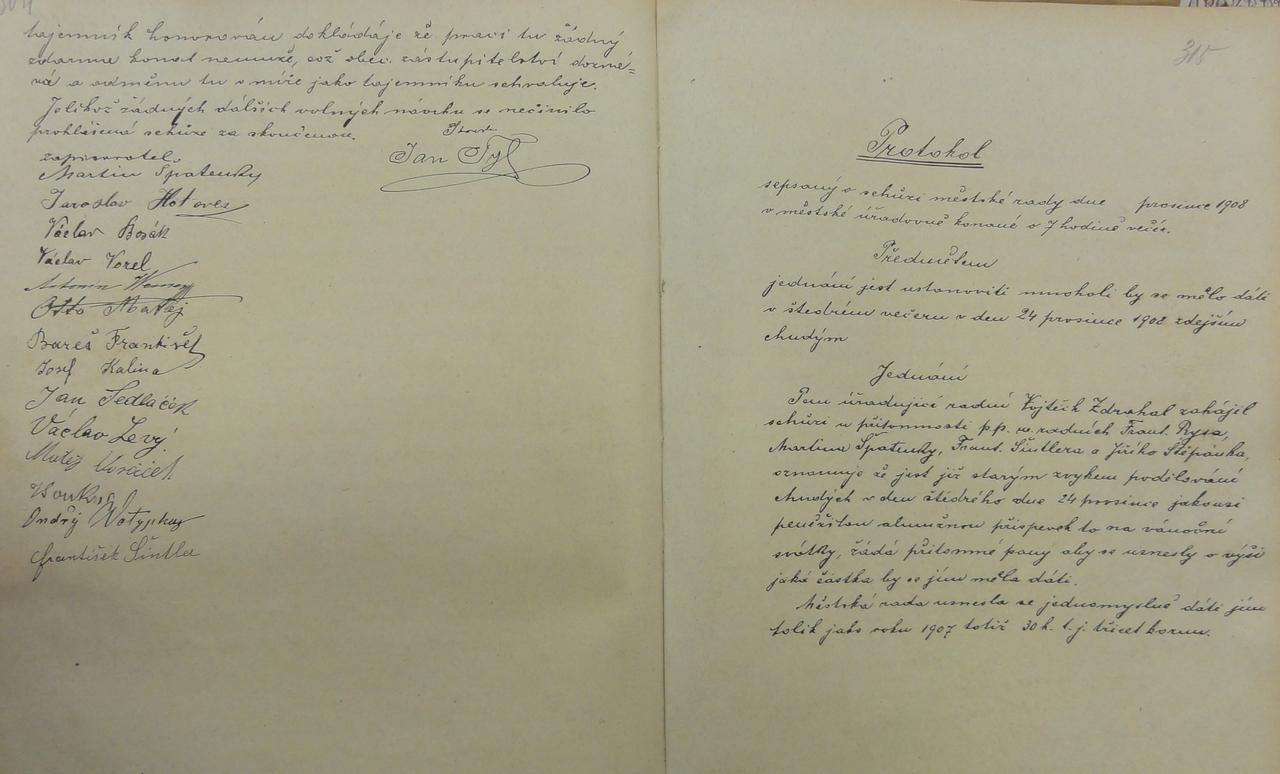 tajemník honorován dokládáje že praci tu žádný
zdarma konat nemuže, což obec. zástupitelstvi uzná-
vá a odměnu tu v míře jako tajemníku schvaluje.
Jelikož žádných dálších volných návrhu se nečinilo
prohlášena schůze za skončenou.
zapisovatel.
Jan Tyl
Martin Špatenky
Jaroslav Hotovec
Václav Bosák
Václav Vorel
Antonín
Otto Matěj
Bareš František
Josef Kalina
Jan Sedláček
Václav Levý
Matěj Voráček
Ondřej
František Šintler
315
Protokol
sepsaný o schůzi městské rady dne prosince 1908
v městské úřadovně konané o 7 hodině večer.
Předmětem
jednání jest ustanoviti mnoholi by se mělo dáti
o štedrém večeru v den 24 prosince 1908 zdejším
chudým
Jednání
Pan úřadující radní Vojtěch Zdrahal zahájil
schůzi u přítomnosti p.p. m. radních Frant. Rysa,
Martina Špatenky, Frant. Šintlera a Jiřího Štěpánka,
oznamuje že jest již starým zvykem podělování
chudých v den štědrého dne 24 prosince jakousi
peněžitou almužnou příspevek to na vánoční
svátky, žádá přítomné pany aby se usnesly o výši
jaká částka by se jím měla dáti.
Městská rada usnesla se jednomyslně dáti jím
tolik jako roku 1907 totiž 30 k. t. j. třicet korun.